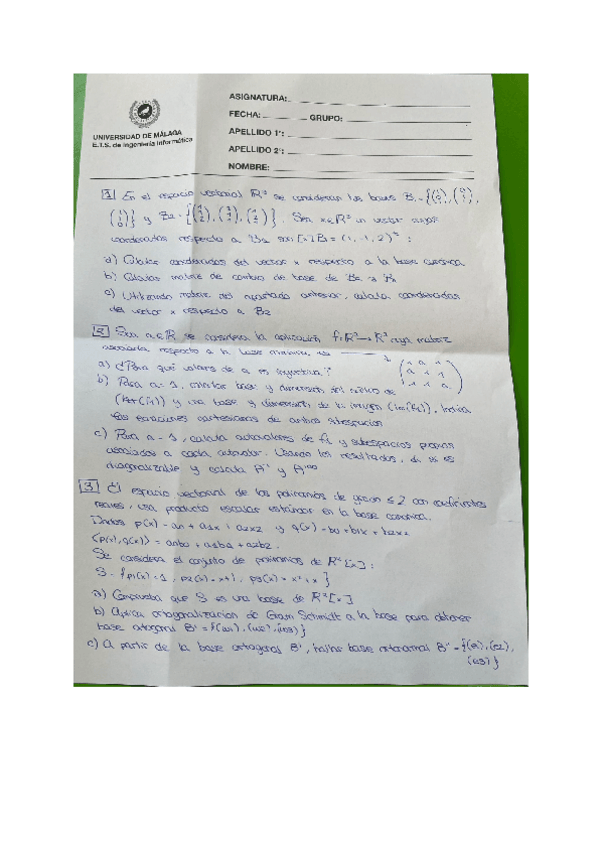 UNIVERSIDAD DE MÁLAGA
E.T.S. de Ingeniería Informática
ASIGNATURA:
FECHA: GRUPO:
APELLIDO 1º:
APELLIDO 2º:
NOMBRE:
1 En el espacio vectorial R³ se consideran las bases B₁ =
y B₂ = . Sea x∈R³ un vector cuyas
coordenadas respecto a B₁ son [x]B₁ = (1, -1, 2)ᵗ :
a) Obtén coordenadas del vector x respecto a la base canónica
b) Obtén matriz de cambio de base de
c) Utilizando matriz del apartado anterior, calcula coordenadas
del vector x respecto a B₂
2 Sea a∈R se considera la aplicación f: R³→R³ cuya matriz
asociada respecto a la base canónica es
a) ¿Para qué valores de a es inyectiva?
b) Para a=1, calcula base y dimensión del núcleo de
(Ker(f₁)) y una base y dimensión de la imagen (Im(f₁)), indica
las ecuaciones cartesianas de ambos subespacios
c) Para a=1, calcula autovalores de f₁ y subespacios propios
asociados a cada autovalor. Usando los resultados, di si es
diagonalizable y calcula
3 El espacio vectorial de los polinomios de grado ≤ 2 con coeficientes
reales, usa producto escalar estándar en la base canónica.
Dados p(x) = a₀ + a₁x + a₂x² y q(x) = b₀ + b₁x + b₂x²
⟨p(x), q(x)⟩ = a₀b₀ + a₁b₁ + a₂b₂.
Se considera el conjunto de polinomios de R²[x]:
S = {p₁(x) = 1, p₂(x) = x+1, p₃(x) = x²+x}
a) Comprueba que S es una base de R²[x]
b) Aplica ortogonalización de Gram Schmidt a la base para obtener
base ortogonal B' = {(u₁), (u₂), (u₃)}
c) A partir de la base ortogonal B', hallar base ortonormal B'' = {(e₁), (e₂),
(e₃)}